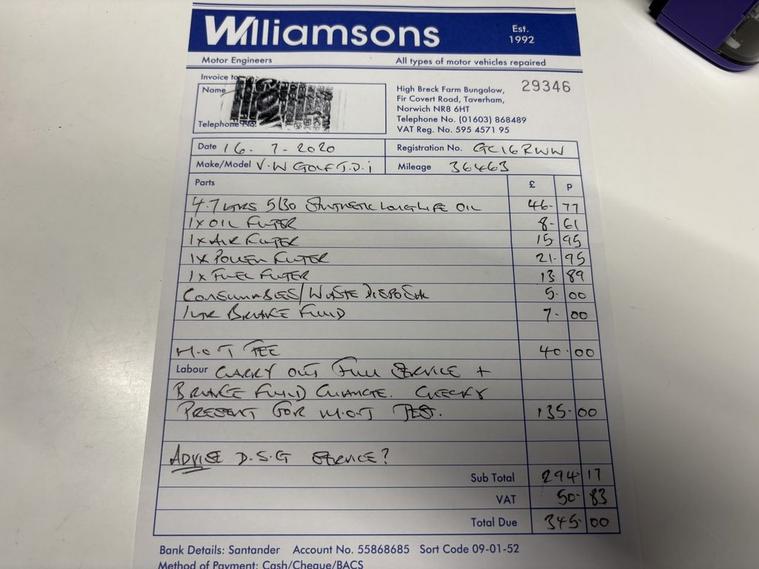 Williamsons
Est. 1992
Motor Engineers
All types of motor vehicles repaired
Invoice to
Name
Telephone
High Breck Farm Bungalow,
Fir Covert Road, Taverham,
Norwich NR8 6HT
Telephone No. (01603) 868489
VAT Reg. No. 595 4571 95
29346
Date 16. 7- 2020
Registration No. GC16RWW
Make/Model V.W GOLF T.D.i
Mileage 36463
Parts £ P
4.7 LTRS 5/30 SYNTHETIC LONGLIFE OIL 46- 77
1X OIL FILTER 8- 61
1X AIR FILTER 15 95
1X POLLEN FILTER 21- 95
1X FUEL FILTER 13 89
CONSUMABLES/WASTE DISPOSAL 5- 00
1LTR BRAKE FLUID 7- 00
M.O.T FEE 40-00
Labour CARRY OUT FULL SERVICE +
BRAKE FLUID CHANGE.
PRESENT FOR M.O.T TEST. 135-00
ADVISE D.S.G SERVICE?
Sub Total 294-17
VAT 50- 83
Total Due 345-00
Bank Details: Santander Account No. 55868685 Sort Code 09-01-52
Method of Payment: Cash/Cheque/BACS